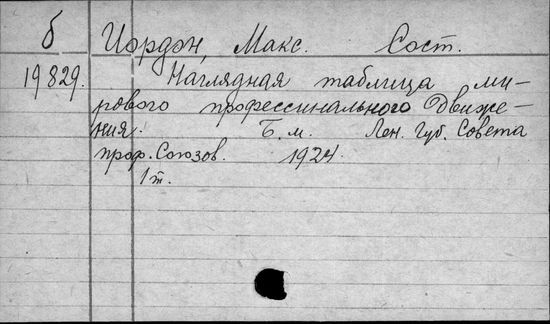 б Иордан, Макс. Сост.
19829. Наглядная таблица ми-
рового профессинального движе-
ния. Б. м. Лен. Губ. Совета
проф. Союзов. 1924.
1 т.